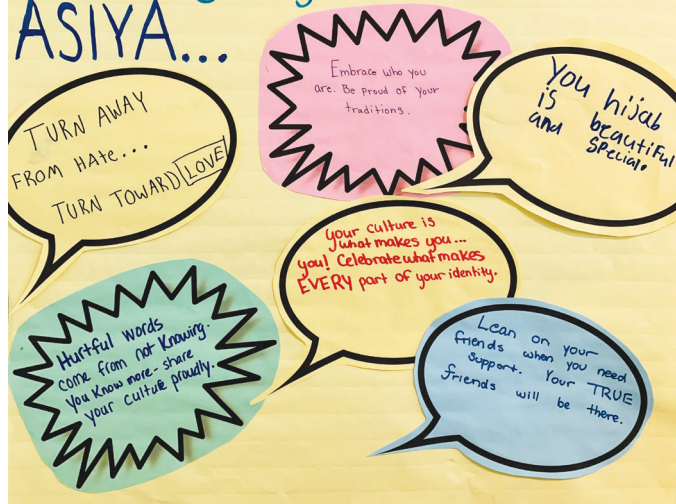 ASIYA...
TURN AWAY
FROM HATE...
TURN TOWARD LOVE
Embrace who you
are. Be proud of your
traditions.
You hijab
is beautiful
and special.
Your culture is
what makes you...
you! Celebrate what makes
EVERY part of your identity.
Hurtful words
come from not knowing.
You know more - share
your culture proudly.
Lean on your
friends when you need
support. Your TRUE
friends will be there.